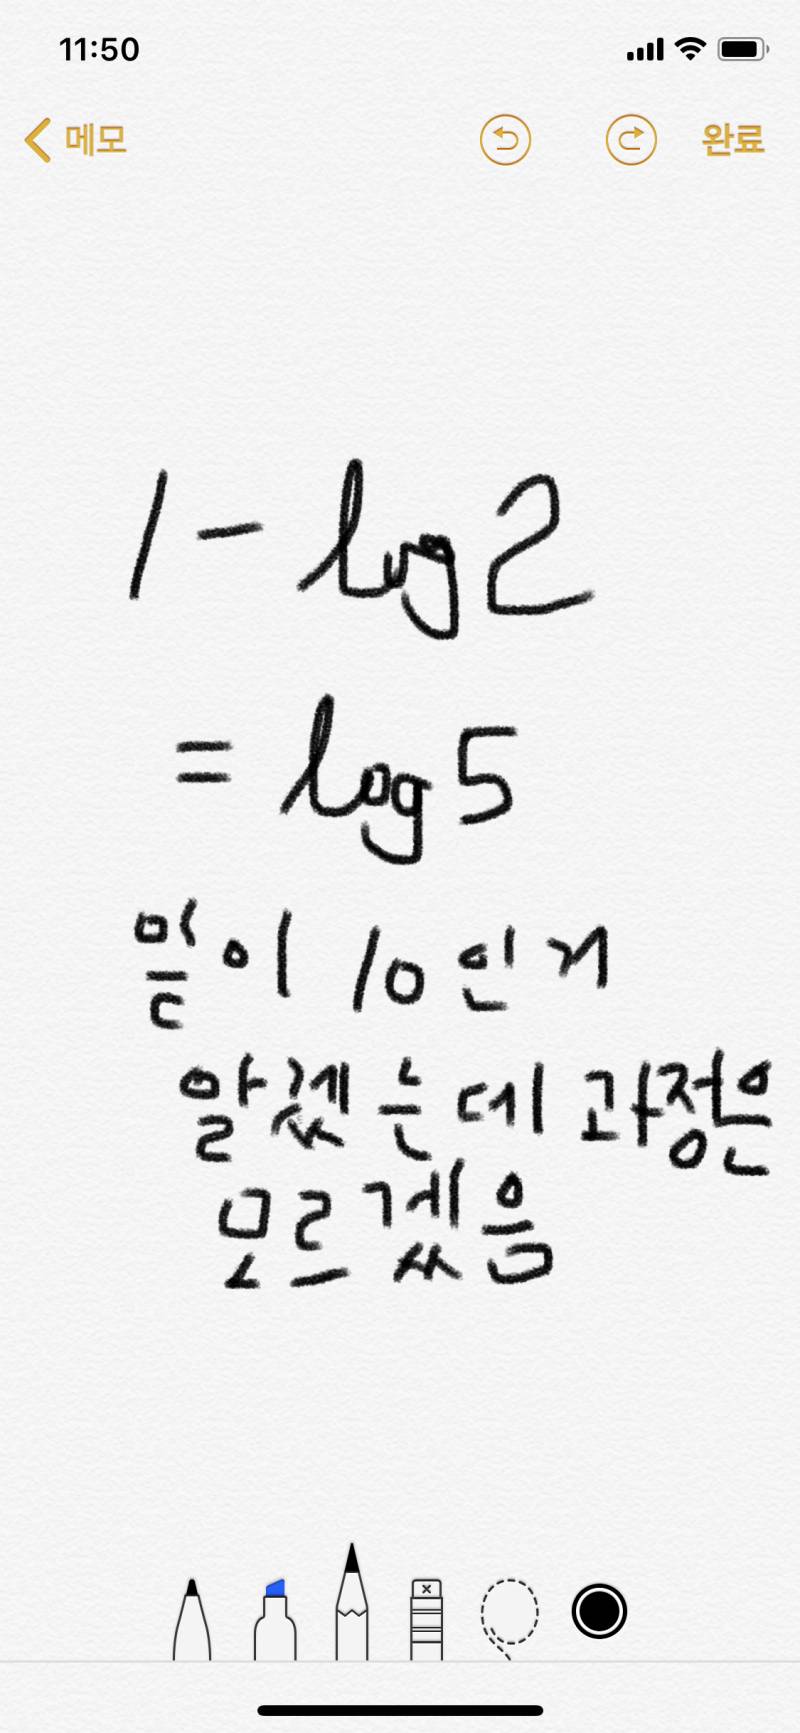 11:50
메모 완료
1 - log 2
= log 5
밑이 10인거
알겠는데 과정은
모르겠음